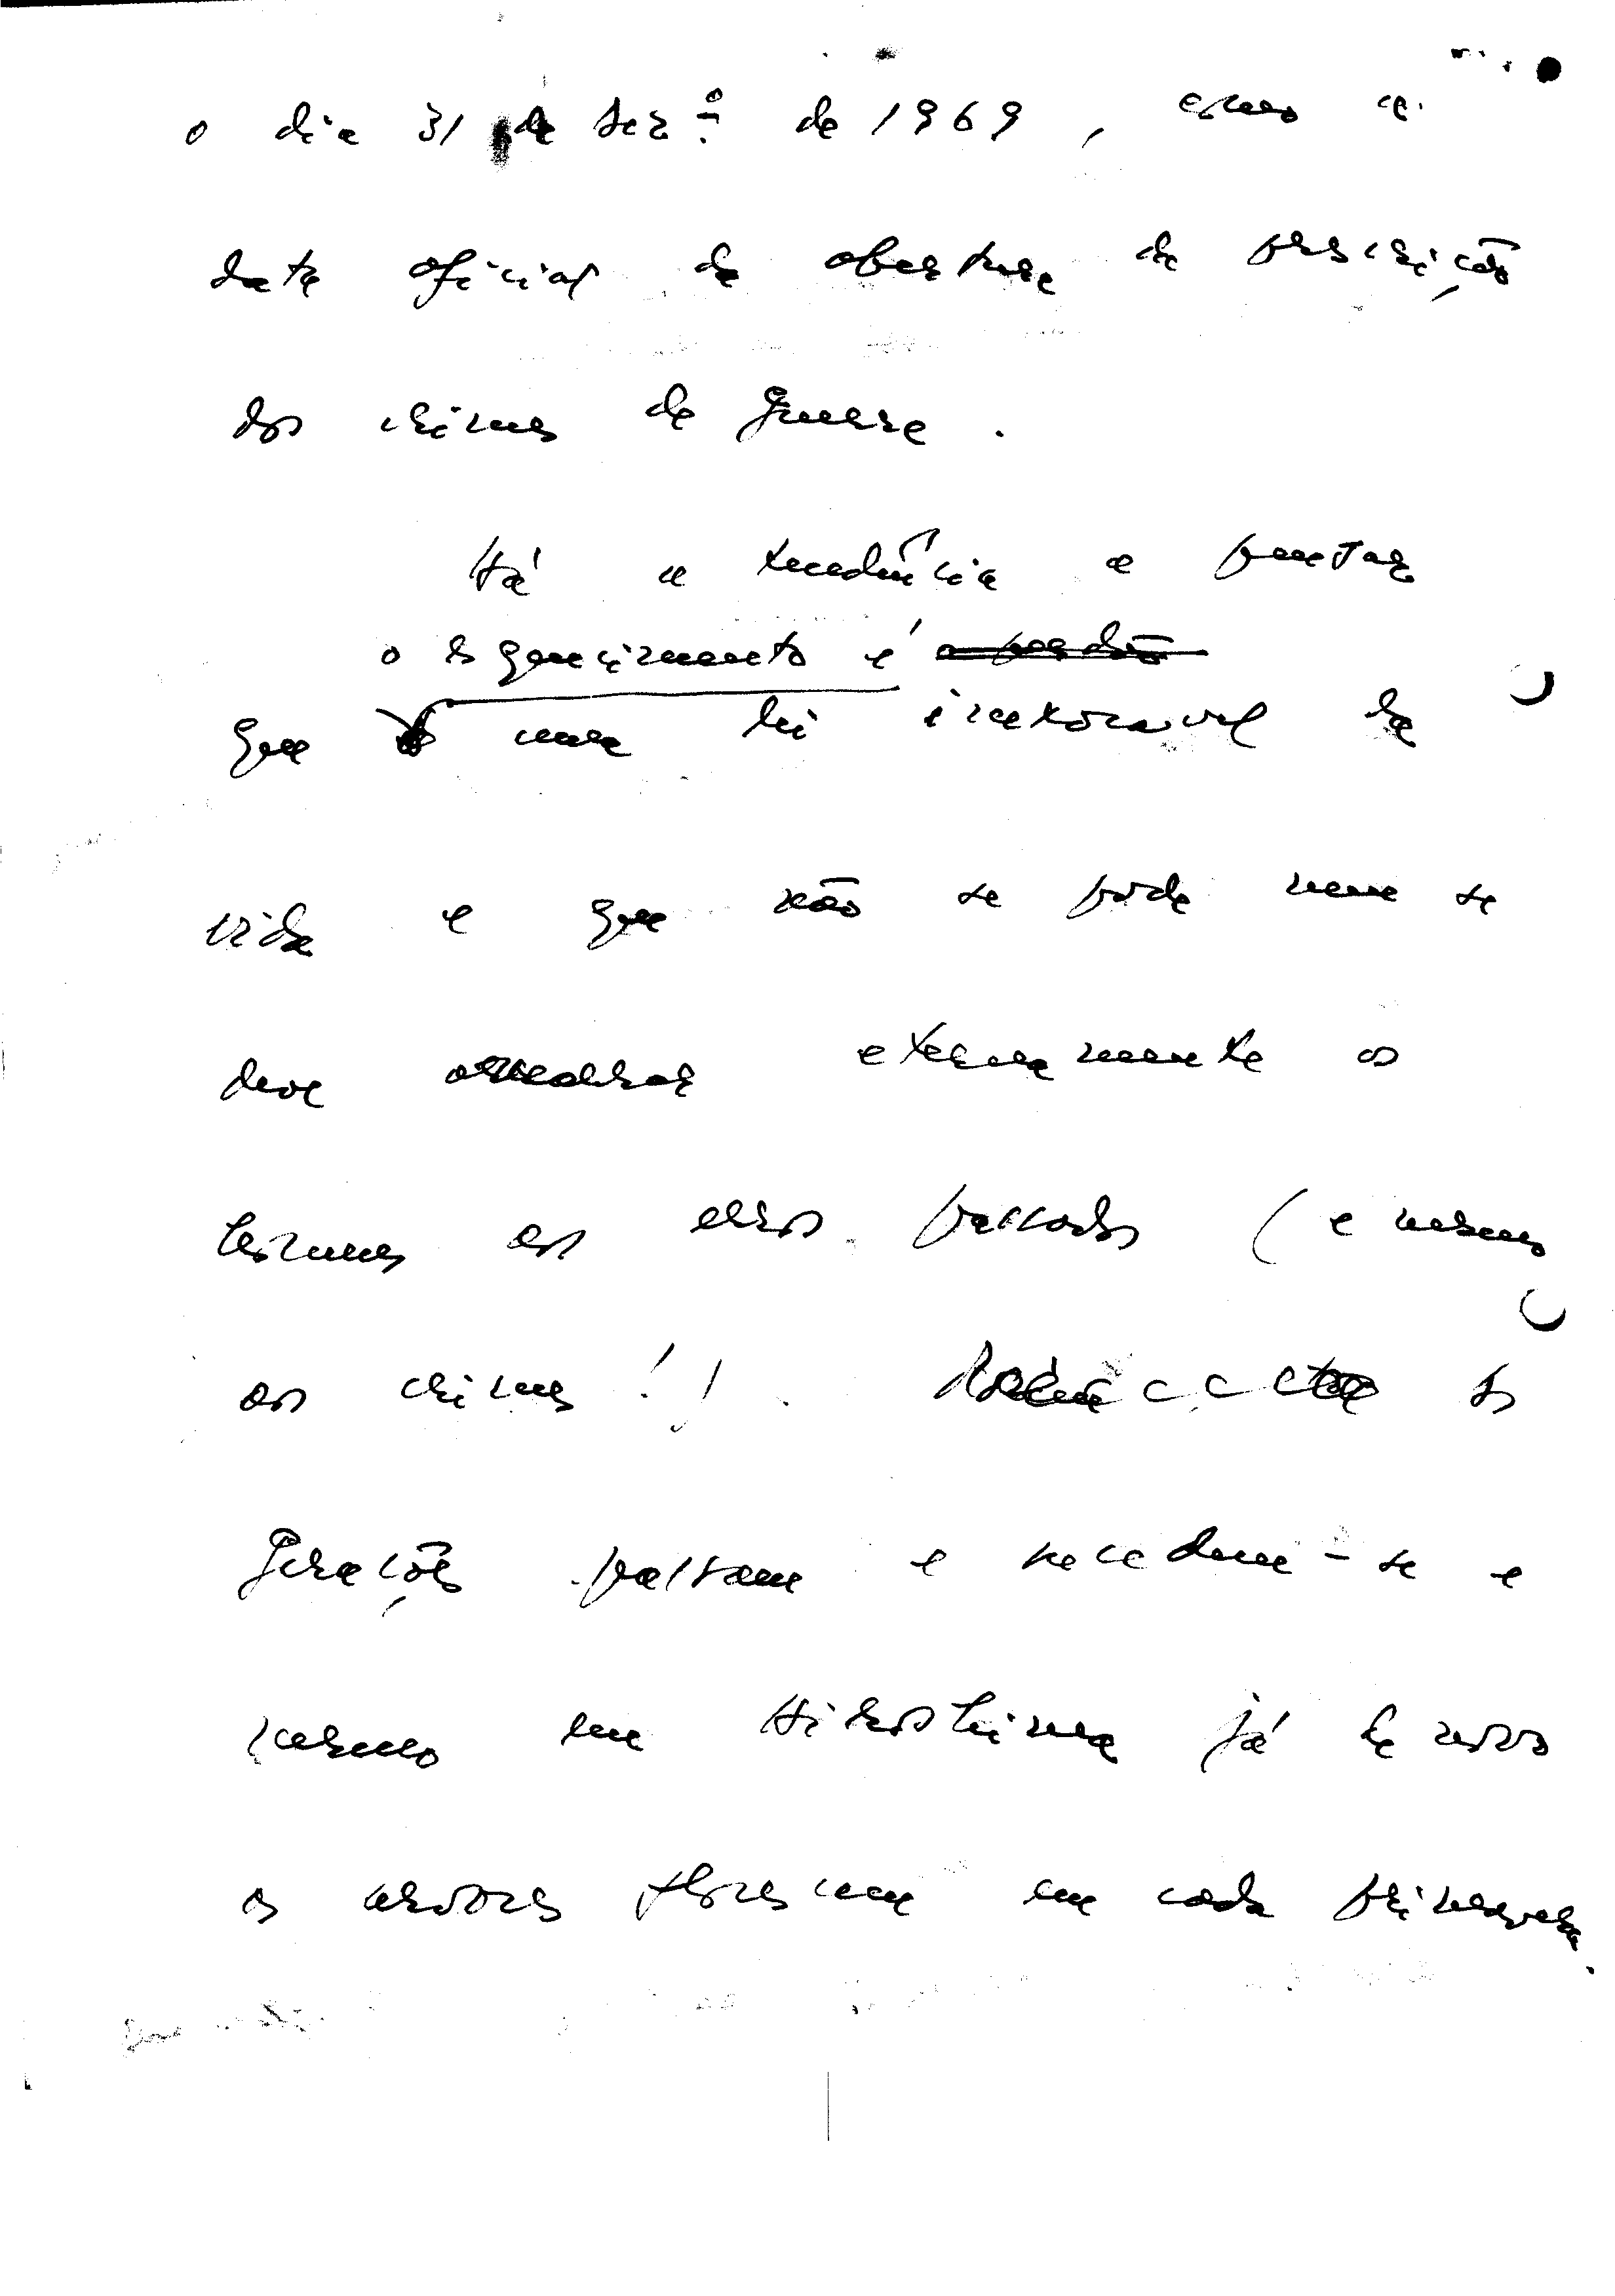 o dia 31 de dezº de 1969, como a
data oficial da abertura da prescrição
dos crimes de guerra.
Há a tendência a pensar
o esquecimento é
que uma lei inexoravel da
vida e que não se pode nem se
deve eternamente os
lermes os erros passados (e mesmo
os crimes!). As
gerações passam e sucedem-se e
mesmo em Hiroshima já de novo
as arvores florescem em cada primavera.